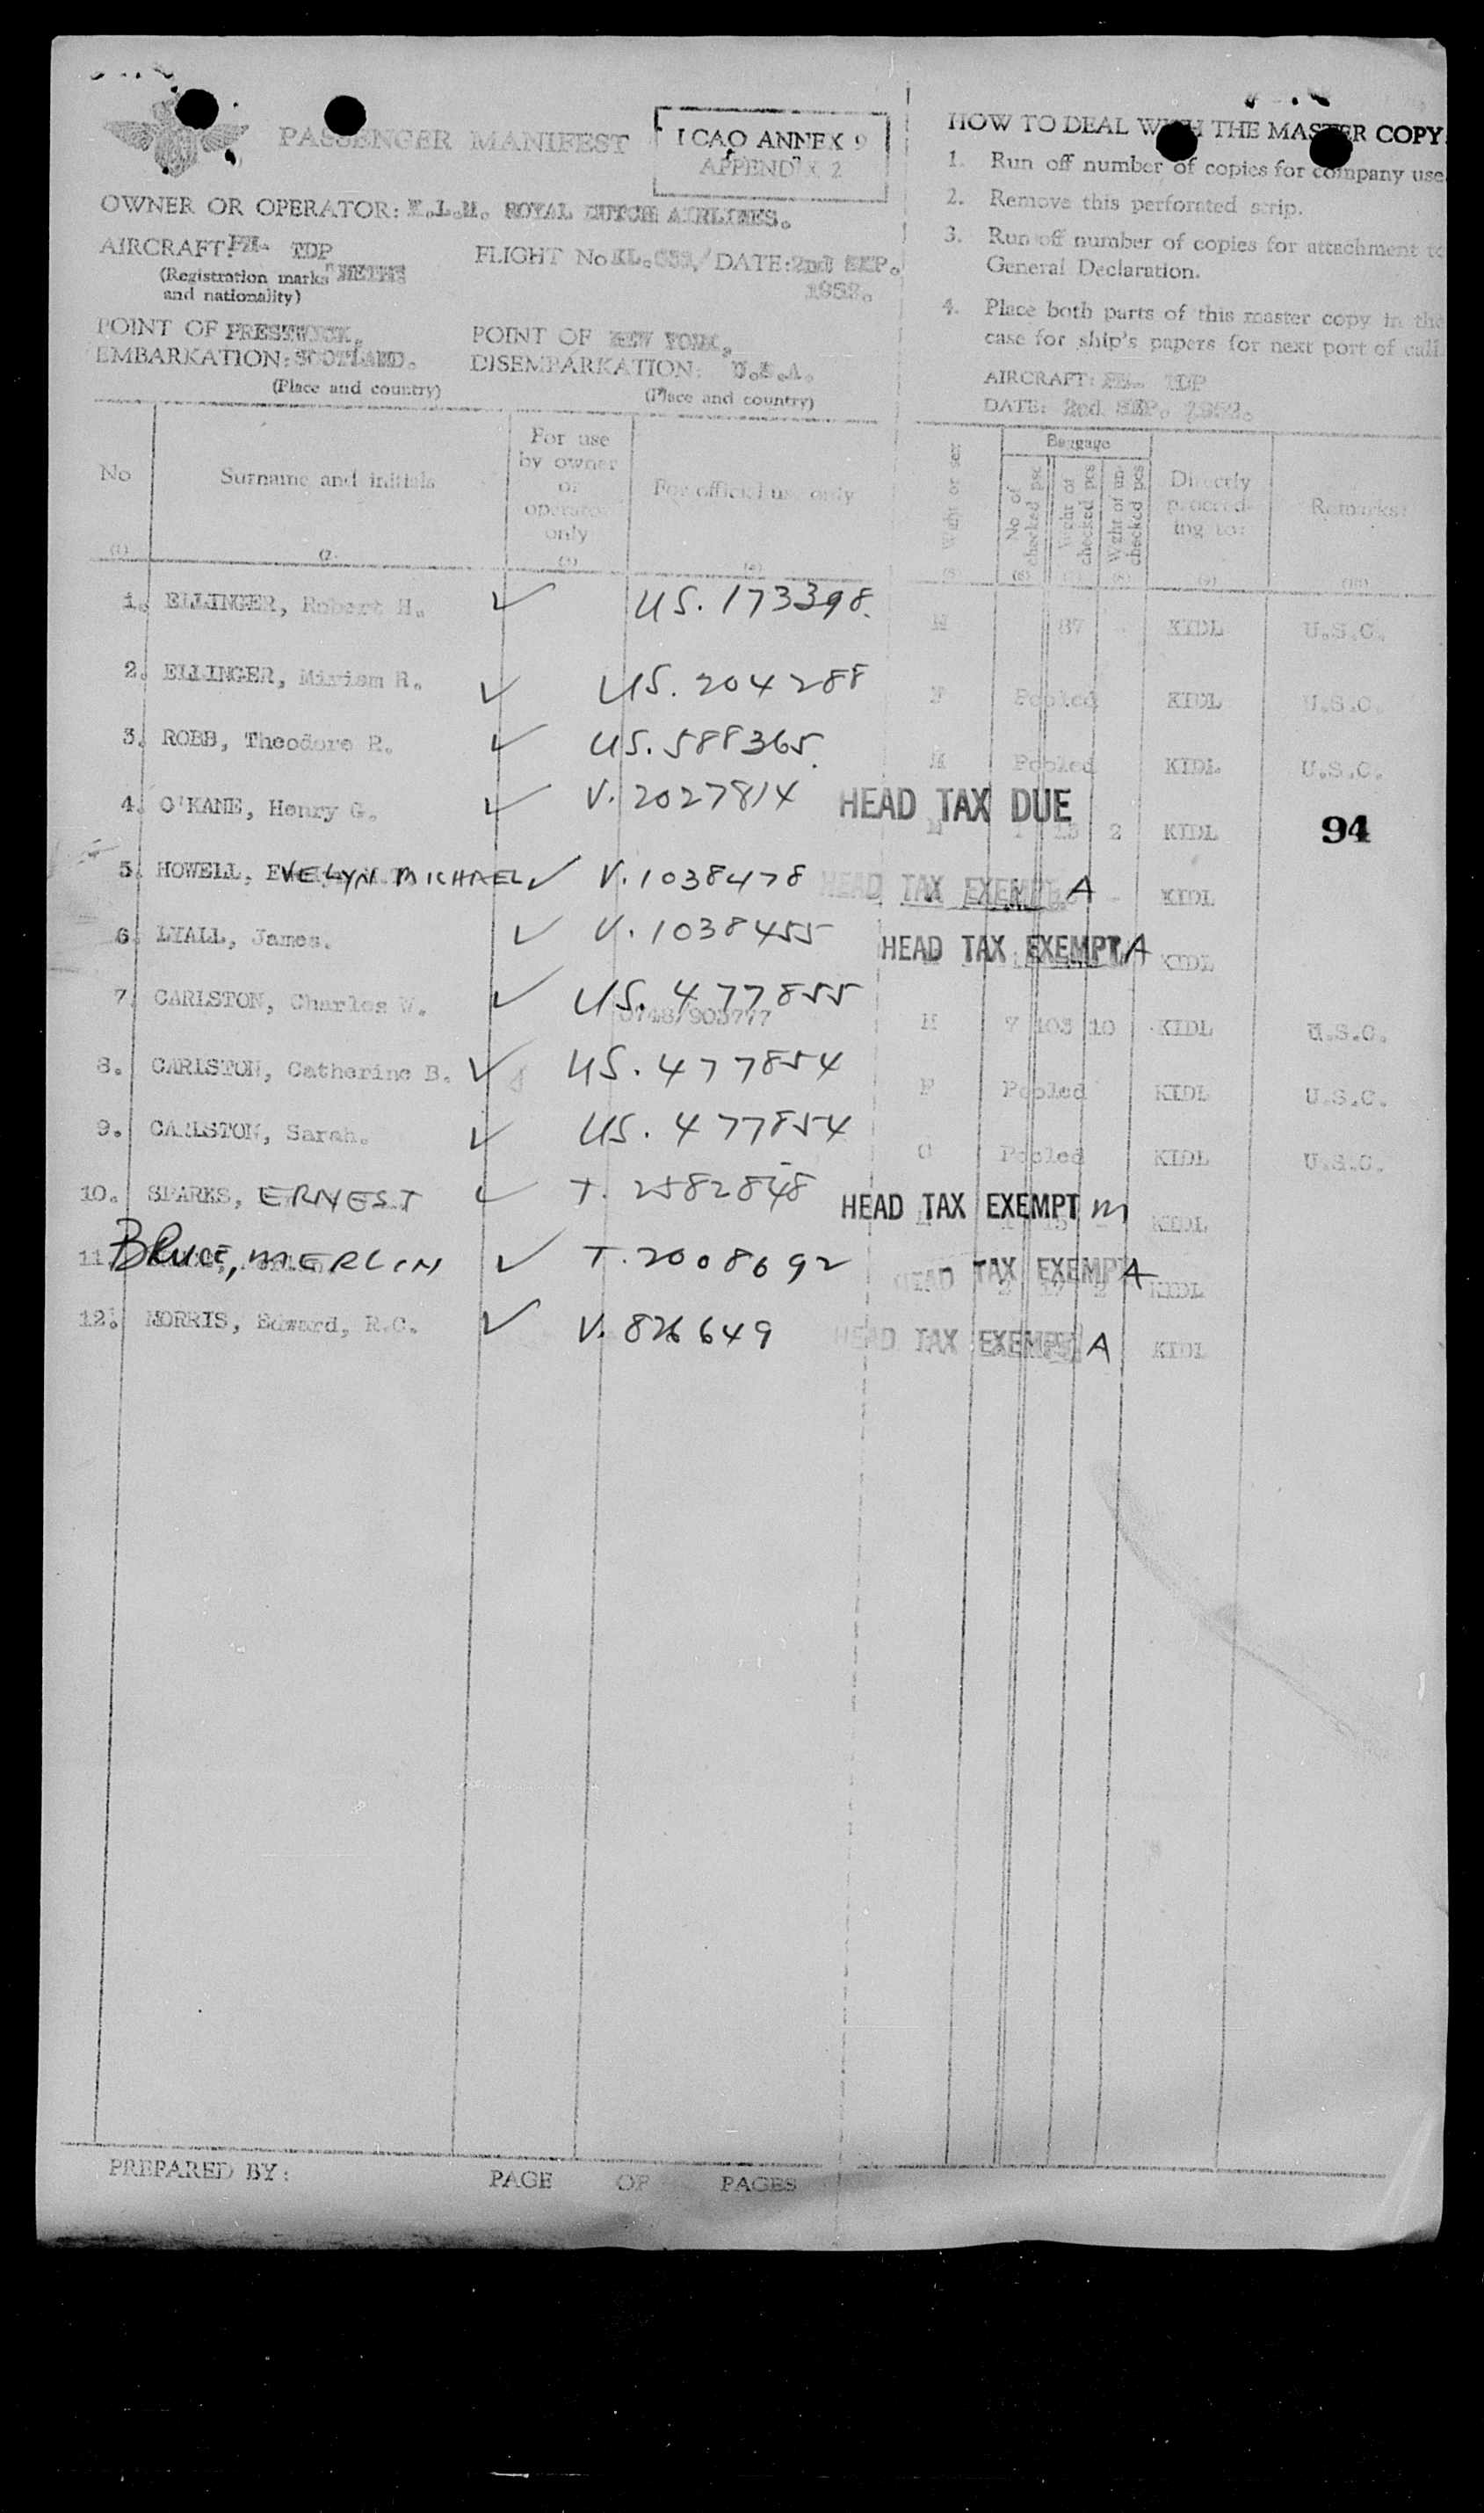 PASSENGER MANIFEST
ICAO ANNEX 9
APPENDIX 2
OWNER OR OPERATOR: K.L.M. ROYAL DUTCH AIRLINES.
AIRCRAFT: PH- TDP
(Registration marks
and nationality)
FLIGHT No KL. DATE: 2nd SEP.
1952.
POINT OF PRESTWICK,
EMBARKATION: SCOTLAND.
(Place and country)
POINT OF NEW YORK,
DISEMBARKATION: U.S.A.
(Place and country)
HOW TO DEAL WITH THE MASTER COPY
1. Run off number of copies for company use
2. Remove this perforated strip.
3. Run off number of copies for attachment to
General Declaration.
4. Place both parts of this master copy in the
case for ship's papers for next port of call.
AIRCRAFT: PH- TDP
DATE: 2nd SEP. 1952.
No
(1)
Surname and initials
(2
For use
by owner
or
operator
only
(3)
For official use only
(4)
Wght or sex
(5)
Baggage
No of
checked pcs
(6)
Wght of
checked pcs
(7)
Wght of un-
checked pcs
(8)
Directly
proceed-
ing to:
(9)
Remarks:
(10)
1. ELLINGER, Robert H. ✓ US. 173398. M 87 - KIDL U.S.C.
2. ELLINGER, Miriam R. ✓ US. 204288 F Pooled KIDL U.S.C.
3. ROBB, Theodore R. ✓ US. 588365. M Pooled KIDL U.S.C.
4. O'KANE, Henry G. ✓ V. 2027814 HEAD TAX DUE M 1 15 2 KIDL 94
5. HOWELL, EVELYN MICHAEL ✓ V. 1038478 HEAD TAX EXEMPT A - KIDL
6. LYALL, James. ✓ V. 1038455 HEAD TAX EXEMPT A KIDL
7. CARLSTON, Charles W. ✓ US. 477855 0748/903777 M 7 103 10 KIDL U.S.C.
8. CARLSTON, Catherine B. ✓ US. 477854 F Pooled KIDL U.S.C.
9. CARLSTON, Sarah. ✓ US. 477854 C Pooled KIDL U.S.C.
10. SPARKS, ERNEST ✓ T. 2582848 HEAD TAX EXEMPT M KIDL
11. BRUCE, MERLIN ✓ T. 2008692 HEAD TAX EXEMPT A KIDL
12. MORRIS, Edward, R.C. ✓ V. 826649 HEAD TAX EXEMPT A KIDL
PREPARED BY: PAGE OF PAGES